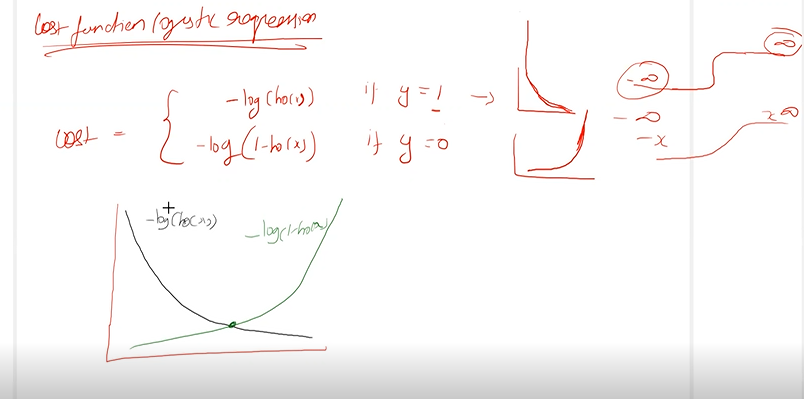 Cost function logistic regression
cost = { -log(hθ(x)) if y = 1 →
-log(1-hθ(x)) if y = 0
-∞
∞
-∞
-x
x ∞
-log(hθ(x))
-log(1-hθ(x))